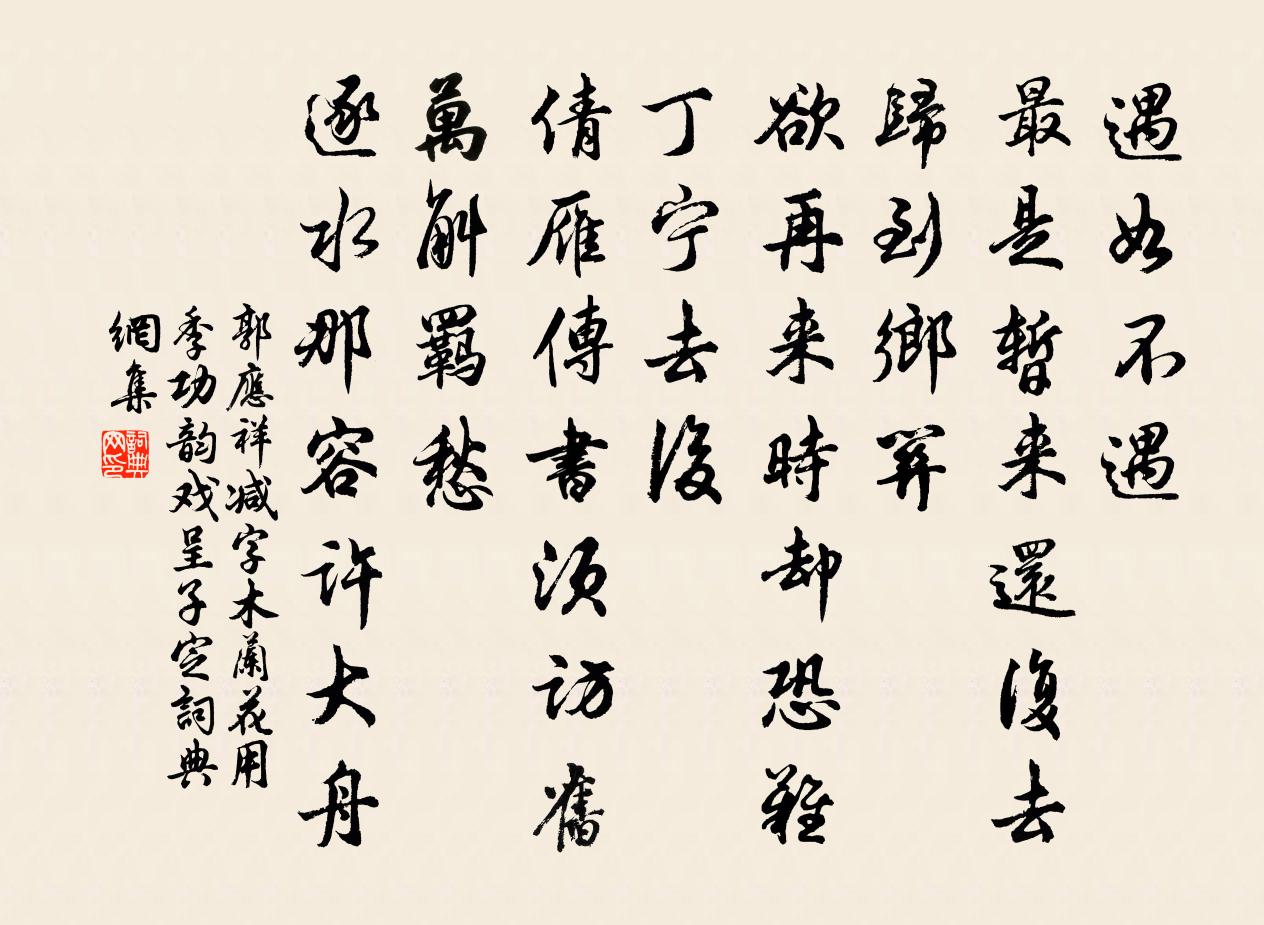 遇如不遇
最是暫来還復去
歸到鄉關
欲再来時却恐難
丁宁去後
倩雁傳書須訪舊
萬斛羈愁
逐水那容許大舟
郭應祥减字木蘭花用
季功韵戏呈子定詞典
網集
詞典网印